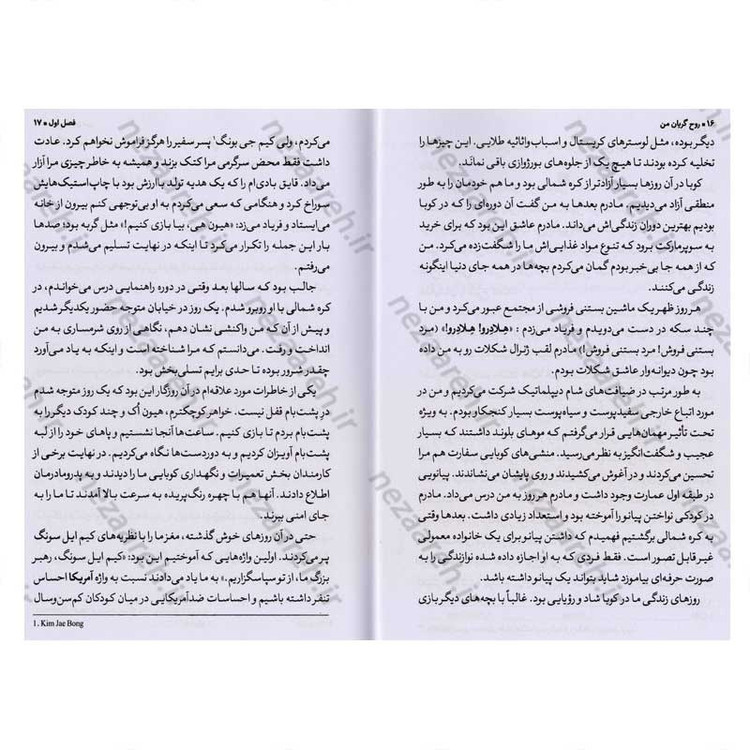 ۱۶ ■ روح گریان من
دیگر بوده، مثل لوسترهای کریستال و اسباب واثاثیه طلایی. این چیزها را
تخلیه کرده بودند تا هیچ یک از جلوه‌های بورژوازی باقی نماند.
کوبا در آن روزها بسیار آزادتر از کره شمالی بود و ما هم خودمان را به طور
منطقی آزاد می‌دیدیم. مادرم بعدها به من گفت آن دوره‌ای را که در کوبا
بودیم بهترین دوران زندگی‌اش می‌داند. مادرم عاشق این بود که برای خرید
به سوپرمارکت برود که تنوع مواد غذایی‌اش ما را شگفت‌زده می‌کرد. من
که از همه جا بی‌خبر بودم گمان می‌کردم بچه‌ها در همه جای دنیا اینگونه
زندگی می‌کنند.
هر روز ظهر یک ماشین بستنی فروشی از مجتمع عبور می‌کرد و من با
چند سکه در دست می‌دویدم و فریاد می‌زدم : «هِلادِرو! هِلادِرو! (مرد
بستنی فروش! مرد بستنی فروش!) مادرم لقب ژنرال شکلات رو به من داده
بود چون دیوانه‌وار عاشق شکلات بودم.
به طور مرتب در ضیافت‌های شام دیپلماتیک شرکت می‌کردیم و من در
مورد اتباع خارجی سفیدپوست و سیاه‌پوست بسیار کنجکاو بودم. به ویژه
تحت تأثیر مهمان‌هایی قرار می‌گرفتم که موهای بلوند داشتند که بسیار
عجیب و شگفت‌انگیز به نظر می‌رسید. منشی‌های کوبایی سفارت هم مرا
تحسین می‌کردند و در آغوش می‌کشیدند و روی پایشان می‌نشاندند. پیانویی
در طبقه اول عمارت وجود داشت و مادرم هر روز به من درس می‌داد. مادرم
در کودکی نواختن پیانو را آموخته بود و استعداد زیادی داشت. بعدها وقتی
به کره شمالی برگشتیم فهمیدم که داشتن پیانو برای یک خانواده معمولی
غیر قابل تصور است. فقط فردی که به او اجازه داده شده نوازندگی را به
صورت حرفه‌ای بیاموزد شاید بتواند یک پیانو داشته باشد.
روزهای زندگی ما در کوبا شاد و رؤیایی بود. غالباً با بچه‌های دیگر بازی
فصل اول ■ ۱۷
می‌کردم، ولی کیم جی بونگ¹ پسر سفیر را هرگز فراموش نخواهم کرد. عادت
داشت فقط محض سرگرمی مرا کتک بزند و همیشه به خاطر چیزی مرا آزار
می‌داد. قایق بادی‌ام را که یک هدیه تولد با ارزش بود با چاپ‌استیک‌هایش
سوراخ کرد و هنگامی که سعی می‌کردم به او بی‌توجهی کنم بیرون از خانه
می‌ایستاد و فریاد می‌زد: «هیون هی، بیا بازی کنیم!» مثل گربه بود؛ صدها
بار این جمله را تکرار می‌کرد تا اینکه در نهایت تسلیم می‌شدم و بیرون
می‌رفتم.
جالب بود که سالها بعد وقتی در دوره راهنمایی درس می‌خواندم، در
کره شمالی با او روبرو شدم. یک روز در خیابان متوجه حضور یکدیگر شدیم
و پیش از آن که من واکنشی نشان دهم، نگاهی از روی شرمساری به من
انداخت و رفت. می‌دانستم که مرا شناخته است و اینکه به یاد می‌آورد
چقدر شرور بوده تا حدی برایم تسلی‌بخش بود.
یکی از خاطرات مورد علاقه‌ام در آن روزگار این بود که یک روز متوجه شدم
در پشت‌بام قفل نیست. خواهر کوچکترم، هیون اُک و چند کودک دیگر را به
پشت‌بام بردم تا بازی کنیم. ساعت‌ها آنجا نشستیم و پاهای خود را از لبه
پشت‌بام آویزان کردیم و به دوردست‌ها نگاه می‌کردیم. در نهایت برخی از
کارمندان بخش تعمیرات و نگهداری کوبایی ما را دیدند و به پدرومادرمان
اطلاع دادند. آنها هم با چهره رنگ‌پریده به سرعت بالا آمدند تا ما را به
جای امنی ببرند.
حتی در آن روزهای خوش گذشته، مغز ما را با نظریه‌های کیم ایل سونگ
پر می‌کردند. اولین واژه‌هایی که آموختیم این بود: «کیم ایل سونگ، رهبر
بزرگ ما، از تو سپاسگزاریم.» به ما یاد می‌دادند نسبت به واژه آمریکا احساس
تنفر داشته باشیم و احساسات ضدآمریکایی در میان کودکان کم‌سن‌وسال
1. Kim Jae Bong
nezaareh.ir